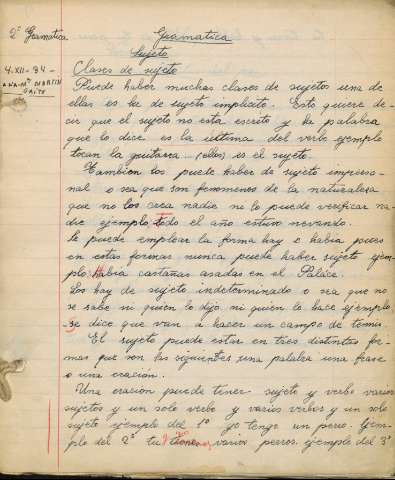 2º Gramatica
Gramatica
Sujeto
4-XII-84-
ANA Mª MARTIN
GAITE
Clases de sujeto
Puede haber muchas clases de sujetos una de
ellas es la de sujeto implicito. Esto quiere de-
cir que el sujeto no está escrito y la palabra
que lo dice es la ultima del verbo ejemplo
tocan la guitarra (ellos) es el sujeto.
Tambien los puede haber de sujeto imperso-
nal o sea que son fenomenos de la naturalesa
que no los crea nadie ni lo puede verificar na-
die ejemplo, todo el año estuvo nevando.
Se puede emplear la forma hay o habia pues
en estas formas nunca puede haber sujeto ejem-
plo: Habia castañas asadas en el Palace.
Los hay de sujeto indeterminado o sea que no
se sabe ni quien lo dijo ni quien lo hace ejemplo
se dice que van á hacer un campo de tenis.
El sujeto puede estar en tres distintas for-
mas que son las siguientes una palabra una frase
o una oración.
Una oración puede tener sujeto y verbo varios
sujetos y un solo verbo y varios verbos y un solo
sujeto ejemplo del 1º yo tengo un perro. Ejem-
plo del 2º tu y varios perros. ejemplo del 3º